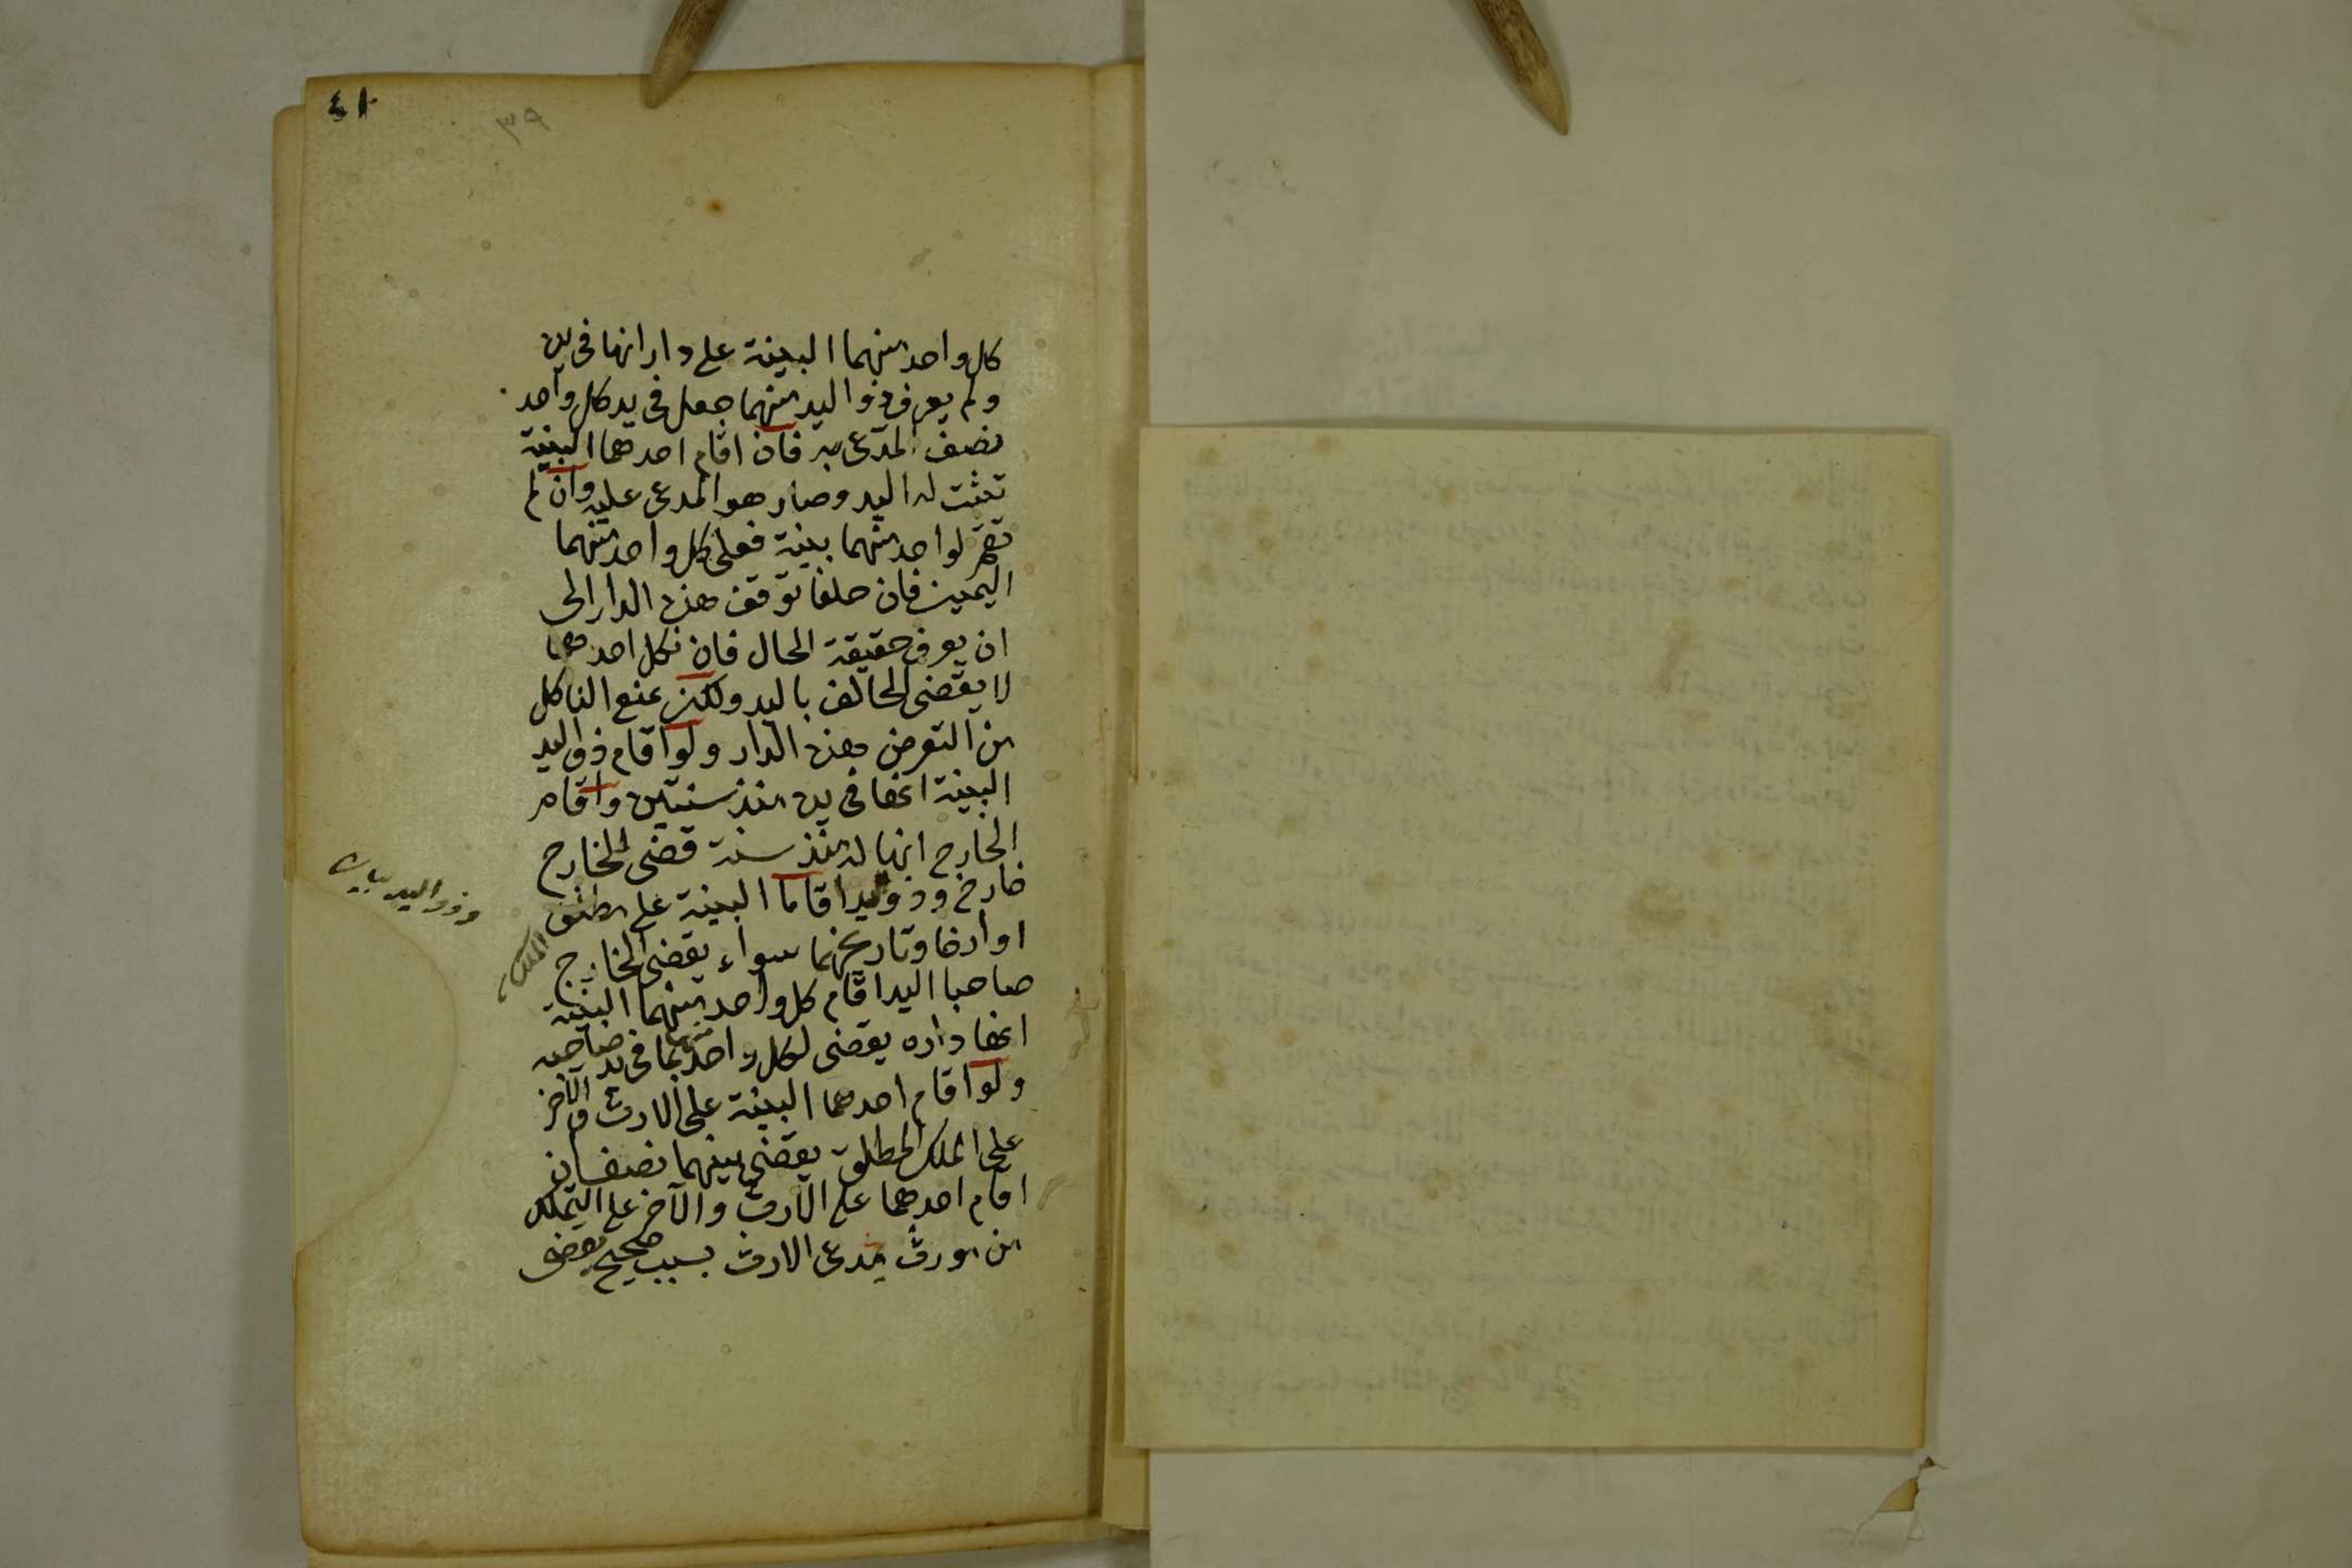 ٤١
٣٩
كل واحد منهما البينة على دار انها فى يده
ولم يعرف ذو اليد منهما جعل فى يد كل واحد
نصف المدعى به فان اقام احدهما البينة
تثبت له اليد وصار هو المدعى عليه وان لم
تقم لواحد منهما بينة فعلى كل واحد منهما
اليمين فان حلفا توقف هذه الدار الى
ان يعرف حقيقة الحال فان نكل احدهما
لا يقضى للحالف باليد ولكن يمنع الناكل
من التعرض بهذه الدار ولو اقام ذو اليد
البينة انها فى يده منذ سنتين واقام
الخارج انها له منذ سنة قضى للخارج
خارج وذو يد اقاما البينة على مطلق
الملك
او ارخا وتاريخهما سواء يقضى للخارج
صاحبا اليد اقام كل واحد منهما البينة
انها داره يقضى لكل واحد منهما بما فى يد صاحبه
ولو اقام احدهما البينة على الارث والآخر
على الملك المطلق يقضى بينهما نصفان
اقام احدهما على الارث والآخر على التملك
من مورث مدعى الارث بسبب صحيح يقضى
وذو اليد